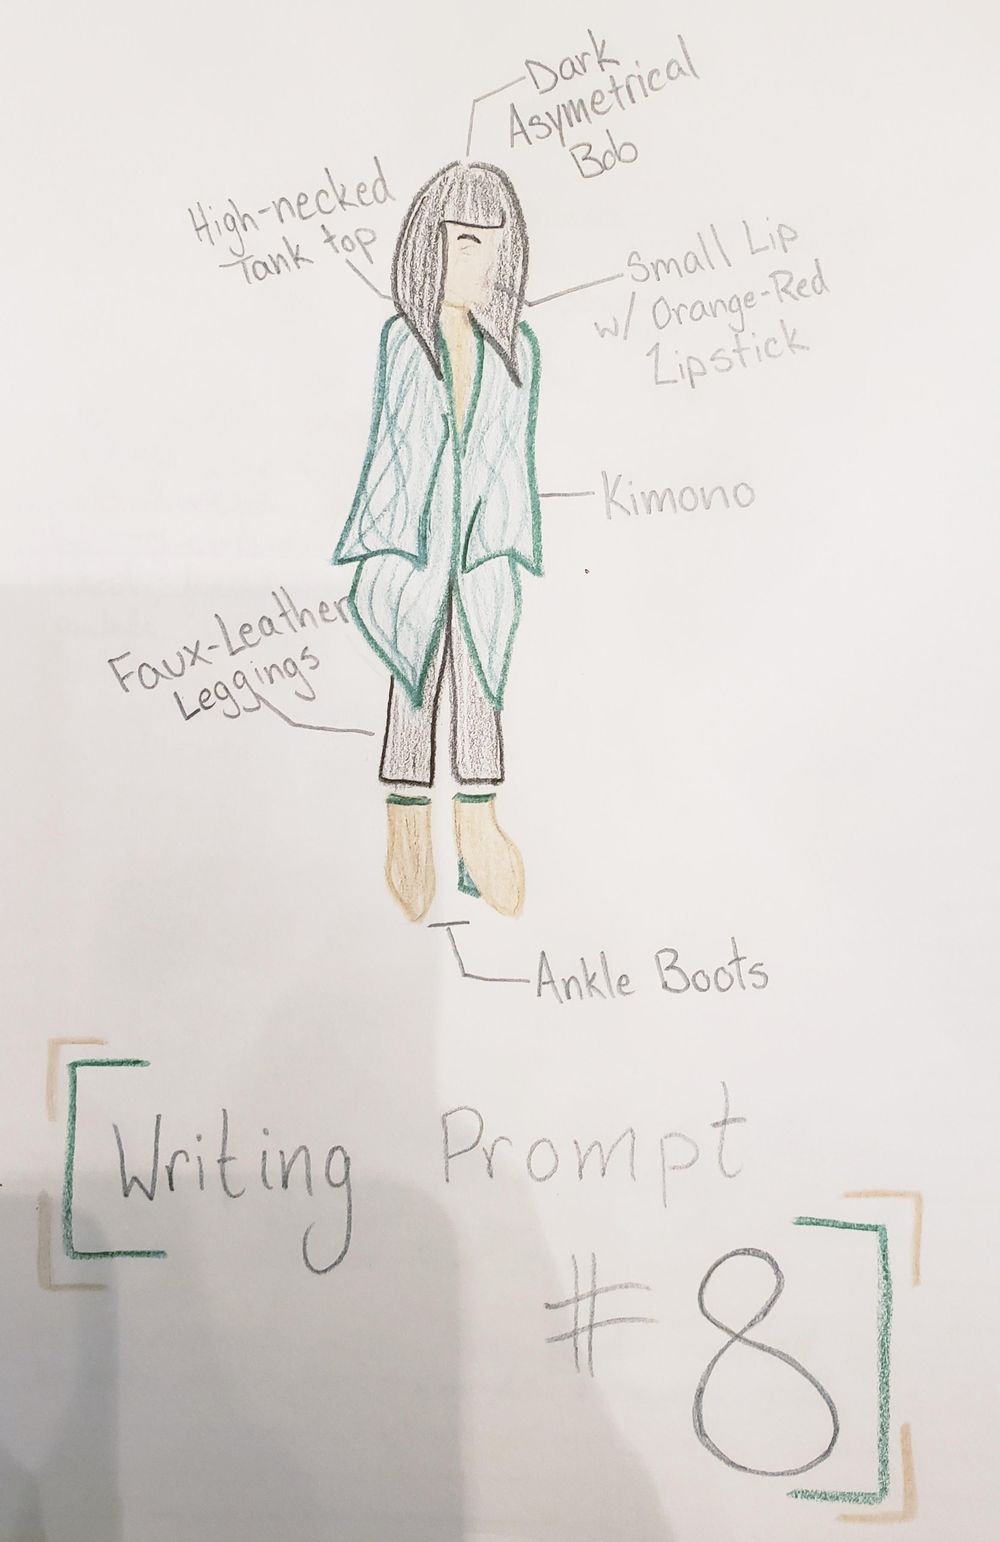 Dark
Asymetrical
Bob
High-necked
Tank top
Small Lip
w/ Orange-Red
Lipstick
Kimono
Faux-Leather
Leggings
Ankle Boots
Writing Prompt
#8